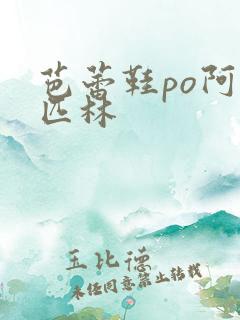 芭蕾鞋po阿
匹林
玉比德
未经同意禁止转载